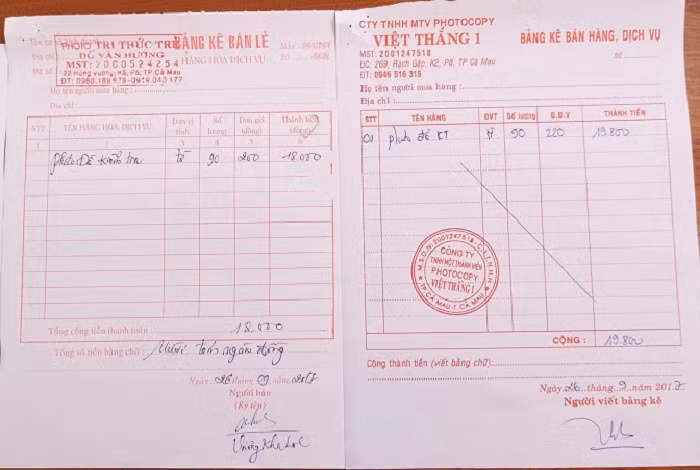 PHOTO TRI THỨC TRẺ
ĐC VĂN HƯƠNG
MST: 2000524254
22 Hùng vương, K5, P5, TP Cà Mau
BẢNG KÊ BÁN LẺ
HÀNG HÓA DỊCH VỤ
Họ tên người mua hàng :
Địa chỉ :
STT TÊN HÀNG HÓA, DỊCH VỤ Đơn vị tính Số lượng Đơn giá (đồng) Thành tiền (đồng)
1 2 3 4 5 6
photo Đề kiểm tra tờ 90 200 18.000
Tổng cộng tiền thanh toán 18.000
Tổng số tiền bằng chữ : Mười tám ngàn đồng
Ngày 26 tháng 09 năm 2017
Người bán
(Ký tên)
CTY TNHH MTV PHOTOCOPY
VIỆT THẮNG 1
MST: 2001247518
ĐC: 269, Rạch Gốp, K2, P8, TP Cà Mau
ĐT: 0946 516 316
BẢNG KÊ BÁN HÀNG, DỊCH VỤ
Số
Họ tên người mua hàng :
Địa chỉ :
STT TÊN HÀNG ĐVT Số lượng Đ.G.V THÀNH TIỀN
01 photo đề KT tờ 90 220 19.800
M.S.D.N: 2001247518 - C.T.T.N.H.H
CÔNG TY
TNHH MỘT THÀNH VIÊN
PHOTOCOPY
VIỆT THẮNG 1
TP CÀ MAU - T. CÀ MAU
CỘNG : 19.800
Cộng thành tiền (viết bằng chữ):
Ngày 26 tháng 9 năm 2017
Người viết bảng kê